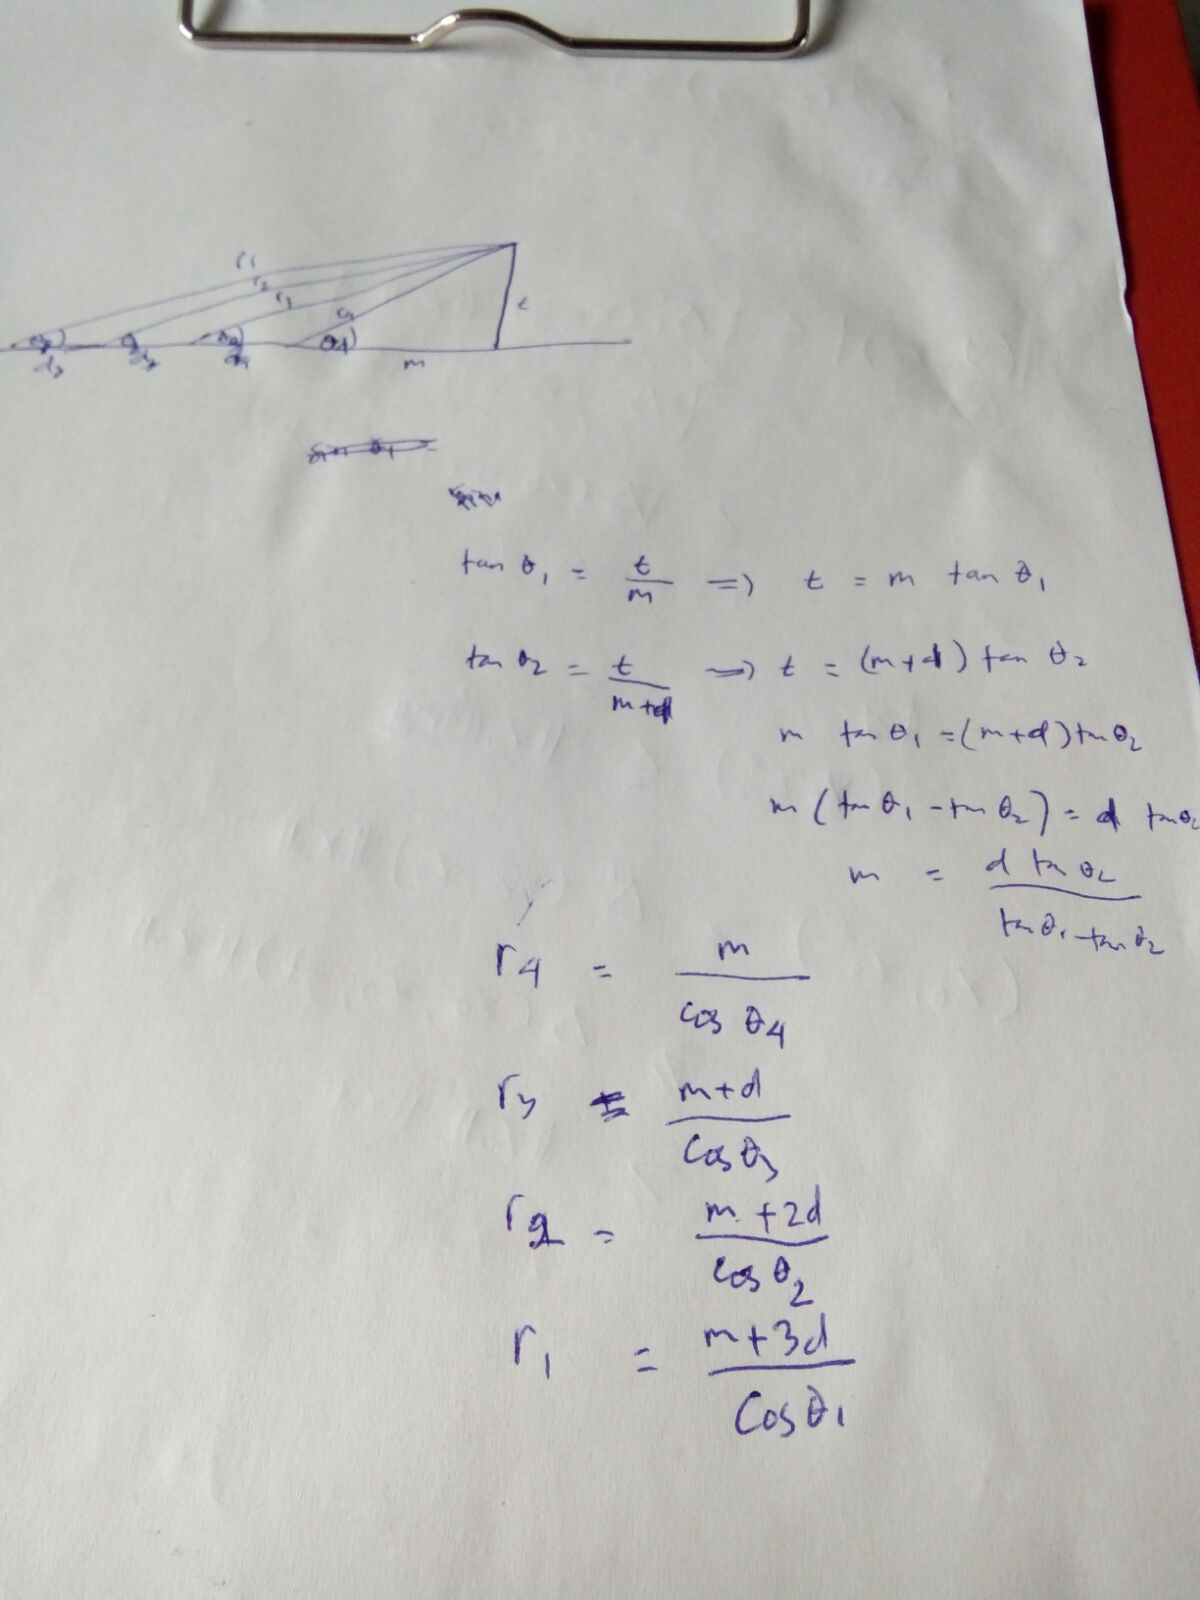 r1
r2
r3
t
θ4
m
tan θ1 = t/m => t = m tan θ1
tan θ2 = t/m+d => t = (m+d) tan θ2
m tan θ1 = (m+d) tan θ2
m (tan θ1 - tan θ2) = d tan θ2
m = d tan θ2 / tan θ1 - tan θ2
r4 = m / cos θ4
r3 = m+d / cos θ3
r2 = m+2d / cos θ2
r1 = m+3d / cos θ1